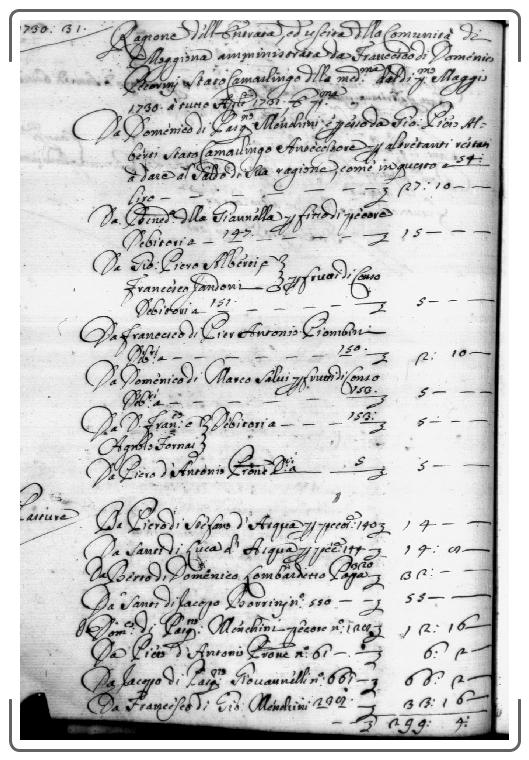 1730. 31. Ragione dell'Entrata, ed uscita della Comunità di
Moggiona amministrata da Francesco di Domenico
Pecorini Stato Camarlingo della med:ma dal dì p:mo Maggio
1730. a tutto Aprile 1731.
Da Domenico di Pasq: Menchini e per esso da Gio: Piero Al-
berti Stato Camarlingo Antecessore per altrettanti restati
a dare al Saldo di sua ragione, come in questo a 54:
Lire — — — 27: 10 —
Da Bened:o della Giannella per fitto di pecore
Debitori a — 147. — — 15 — —
Da Gio: Piero Alberti e
Francesco per frutti di Censo
Debitori a 151. — — 5 — —
Da Francesco di Pier Antonio Piombini
Deb:ri a — — 150. — 2: 10 —
Da Domenico di Marco Salvi per frutti di Censo
Deb:ri a — — 153. — 5 — —
Da D. Fran:co e Debitori a — — 153: — 5 — —
Agnolo Fornai
Da Piero d'Antonio D:a — 5 — 5 — —
Pasture
Da Piero di Stefano d'Acqua per pecore: 140 — 14 — —
Da Santi di Luca d' Acqua per pec:e 144 — 14: 8 —
Da Berto di Domenico Lombardetto 320 — 32: —
Da Santi di Jacopo Borrini n:o 550 — 55 — —
Dom:co di Pasq: Menchini pecore n:o 128 — 12: 16
Da Piero d'Antonio n:o 61 — 6: 2
Da Jacopo di Pasq: Giovannelli n:o 661 — 66: 2
Da Francesco di Gio: Menchini 338 — 33: 16
— 299: 4: